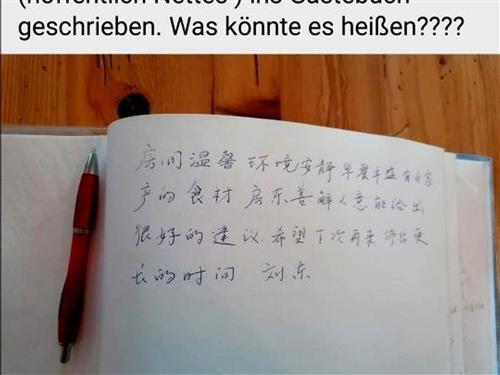 (hoffentlich Nettes ) ins Gästebuch
geschrieben. Was könnte es heißen????
房间温馨 环境安静 早餐丰盛有自家
产的食材 房东善解人意能给出
很好的建议.希望下次再来 停留更
长的时间 刘东